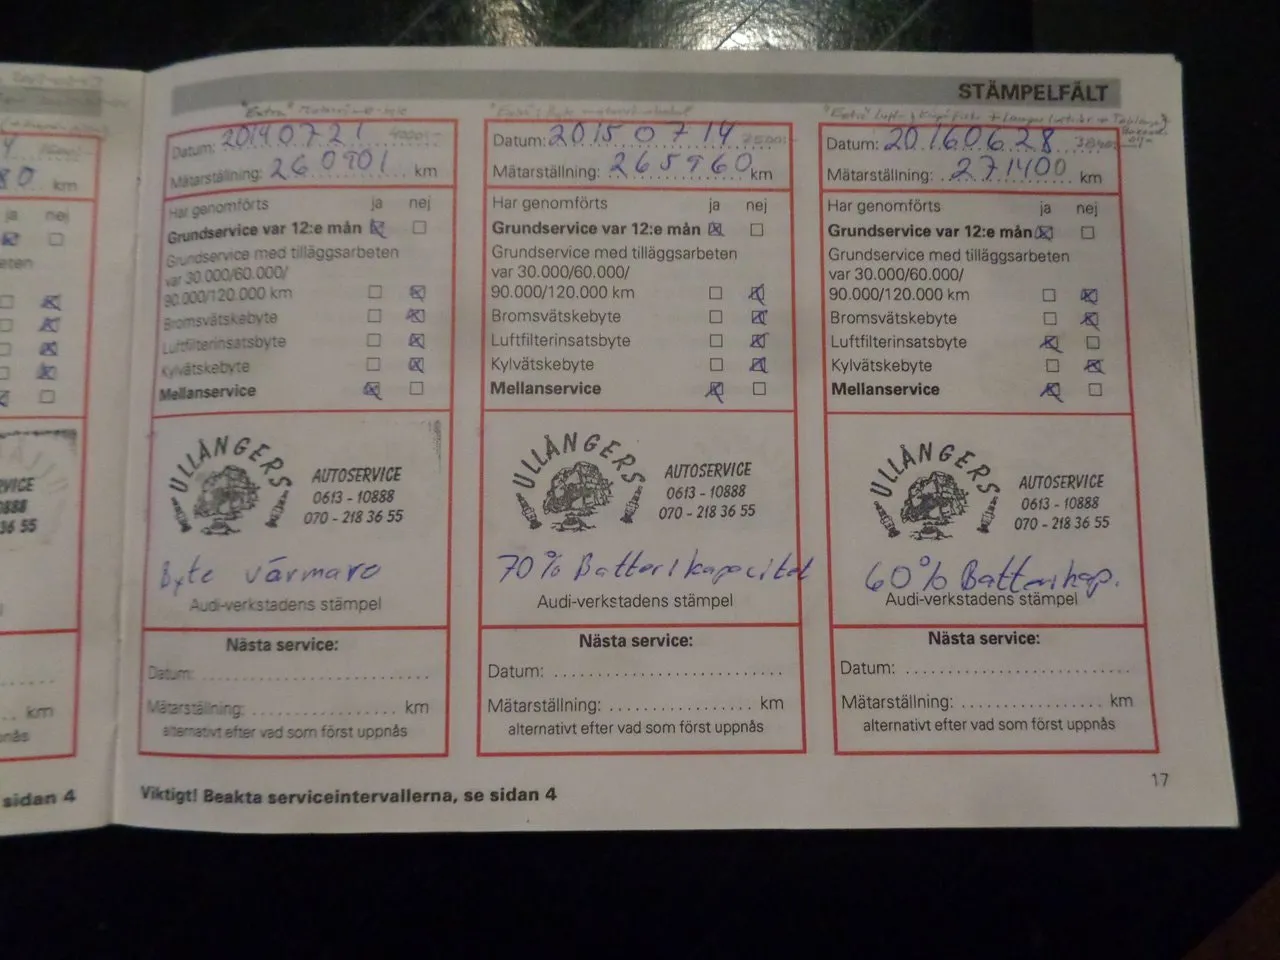 STÄMPELFÄLT
80 km
ja nej
sidan 4
"Extra"
Datum: 20140721
Mätarställning: 260901 km
Har genomförts ja nej
Grundservice var 12:e mån
Grundservice med tilläggsarbeten
var 30.000/60.000/
90.000/120.000 km
Bromsvätskebyte
Luftfilterinsatsbyte
Kylvätskebyte
Mellanservice
ULLÅNGERS
AUTOSERVICE
0613 - 10888
070 - 218 36 55
Byte värmare
Audi-verkstadens stämpel
Nästa service:
Datum:
Mätarställning: km
alternativt efter vad som först uppnås
Datum: 20150714
Mätarställning: 265960 km
Har genomförts ja nej
Grundservice var 12:e mån
Grundservice med tilläggsarbeten
var 30.000/60.000/
90.000/120.000 km
Bromsvätskebyte
Luftfilterinsatsbyte
Kylvätskebyte
Mellanservice
ULLÅNGERS
AUTOSERVICE
0613 - 10888
070 - 218 36 55
70% Batterikapacitet
Audi-verkstadens stämpel
Nästa service:
Datum:
Mätarställning: km
alternativt efter vad som först uppnås
"Extra"
Datum: 20160628
Mätarställning: 271400 km
Har genomförts ja nej
Grundservice var 12:e mån
Grundservice med tilläggsarbeten
var 30.000/60.000/
90.000/120.000 km
Bromsvätskebyte
Luftfilterinsatsbyte
Kylvätskebyte
Mellanservice
ULLÅNGERS
AUTOSERVICE
0613 - 10888
070 - 218 36 55
60% Batterikap.
Audi-verkstadens stämpel
Nästa service:
Datum:
Mätarställning: km
alternativt efter vad som först uppnås
Viktigt! Beakta serviceintervallerna, se sidan 4
17